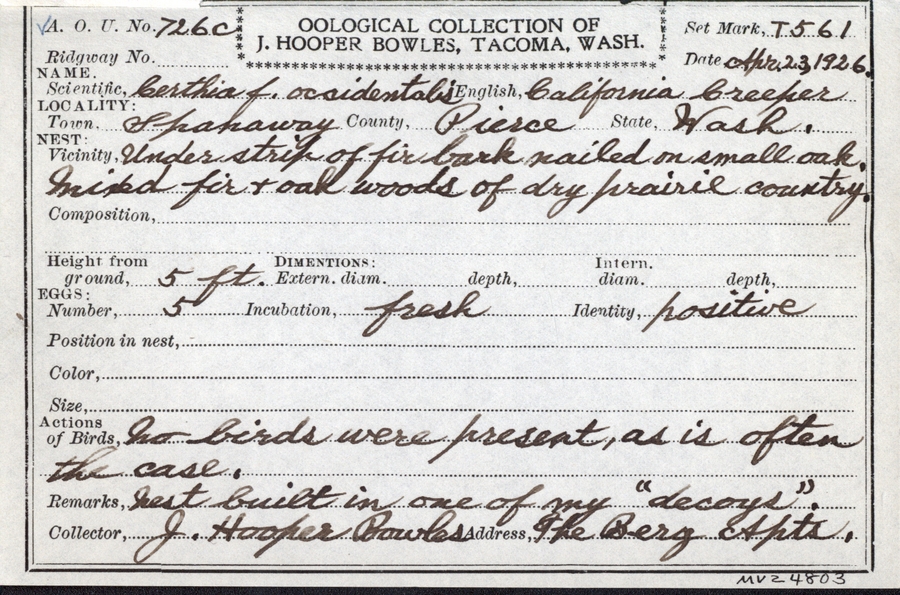 A. O. U. No. 726c
OOLOGICAL COLLECTION OF
J. HOOPER BOWLES, TACOMA, WASH.
Set Mark, T561
Ridgway No.
Date Apr. 23, 1926.
NAME.
Scientific, Certhia f. occidentalis English, California Creeper
LOCALITY:
Town. Spanaway County, Pierce State, Wash.
NEST:
Vicinity, Under strip of fir bark nailed on small oak.
Mixed fir + oak woods of dry prairie country.
Composition,
Height from ground, 5 ft. DIMENTIONS: Extern. diam. depth, Intern. diam. depth,
EGGS:
Number, 5 Incubation, fresh Identity, positive
Position in nest,
Color,
Size,
Actions of Birds, No birds were present, as is often
the case.
Remarks, Nest built in one of my "decoys".
Collector, J. Hooper Bowles Address, The Berg Apts.
MVZ 4803